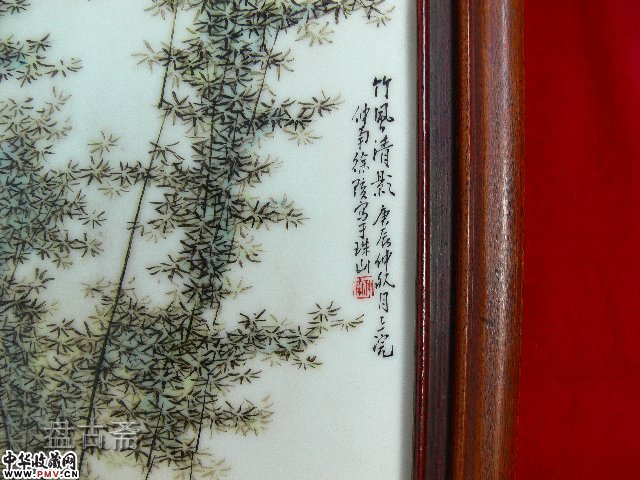 竹风清影 庚辰仲秋月上浣
仲南徐陵写于珠山
盘古斋
中华收藏网
www.PMV.CN